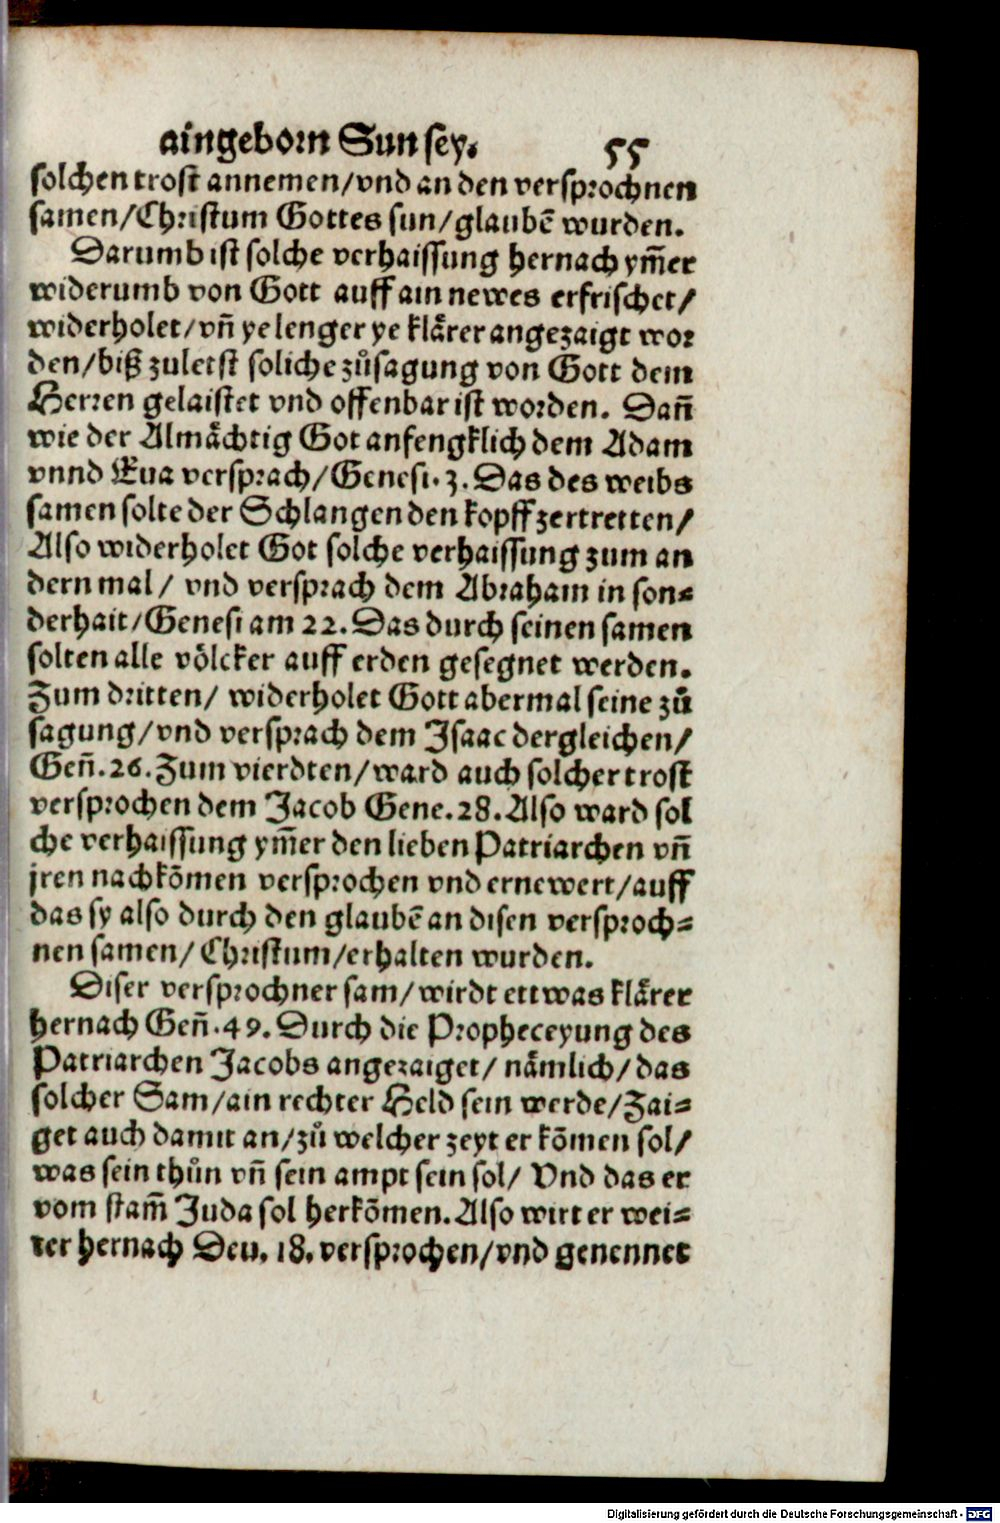 aingeborn Sun sey. 55
solchen trost annemen/vnd an den versprochnen
samen/Christum Gottes sun/glaubē wurden.
Darumb ist solche verhaissung hernach ym̄er
widerumb von Gott auff ain newes erfrischet/
widerholet/vn̄ ye lenger ye klärer angezaigt wor
den/biß zuletst soliche zůsagung von Gott dem
Herren gelaistet vnd offenbar ist worden. Dan̄
wie der Almächtig Got anfengklich dem Adam
vnnd Eua versprach/Genesi.3. Das des weibs
samen solte der Schlangen den kopff zertretten/
Also widerholet Got solche verhaissung zum an
dern mal/ vnd versprach dem Abraham in son⸗
derhait/Genesi am 22. Das durch seinen samen
solten alle völcker auff erden gesegnet werden.
Zum dritten/ widerholet Gott abermal seine zů
sagung/vnd versprach dem Isaac dergleichen/
Gen̄.26. Zum vierdten/ward auch solcher trost
versprochen dem Jacob Gene.28. Also ward sol
che verhaissung ym̄er den lieben Patriarchen vn̄
jren nachkōmen versprochen vnd ernewert/auff
das sy also durch den glaubē an disen versproch⸗
nen samen/ Christum/erhalten wurden.
Diser versprochner sam/wirdt ettwas klärer
hernach Gen̄.49. Durch die Propheceyung des
Patriarchen Jacobs angezaiget/ nämlich/das
solcher Sam/ain rechter Held sein werde/Zai⸗
get auch damit an/zů welcher zeyt er kōmen sol/
was sein thůn vn̄ sein ampt sein sol/ Vnd das er
vom stam̄ Juda sol herkōmen. Also wirt er wei⸗
ter hernach Deu. 18. versprochen/vnd genennet
Digitalisierung gefördert durch die Deutsche Forschungsgemeinschaft - DFG